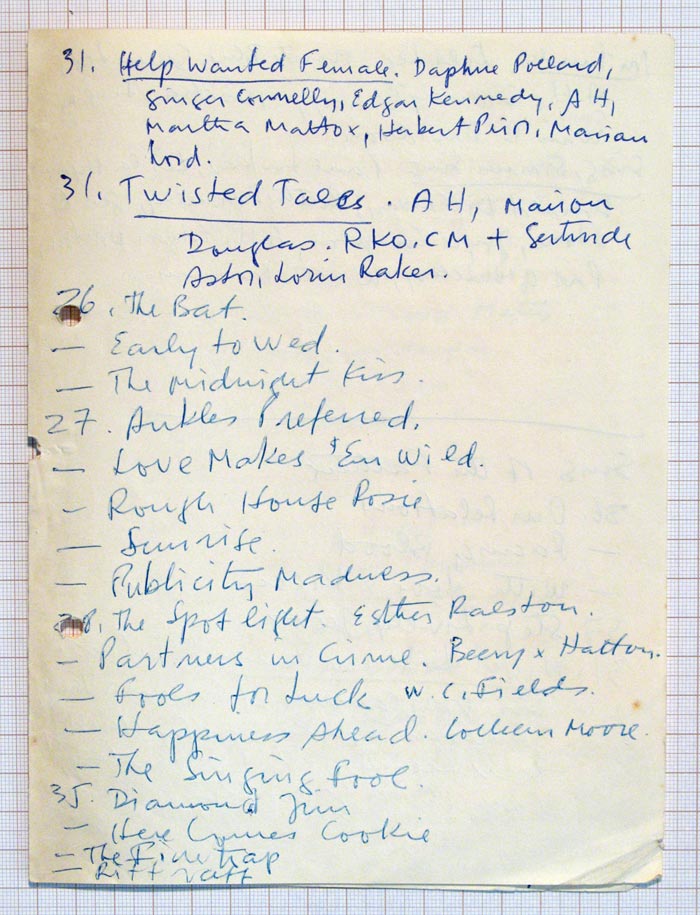 31. Help Wanted Female. Daphne Pollard,
Ginger Connelly, Edgar Kennedy, A H,
Martha Mattox, Herbert Prior, Marian
Lord.
31. Twisted Tales. A H, Marion
Douglas. RKO. CM + Gertrude
Astor, Lorin Raker.
26. The Bat.
— Early to Wed.
— The Midnight Kiss.
27. Ankles Preferred.
— Love Makes 'Em Wild.
— Rough House Rosie
— Sunrise.
— Publicity Madness.
28. The Spotlight. Esther Ralston.
— Partners in Crime. Beery x Hatton.
— Fools for Luck W. C. Fields.
— Happiness Ahead. Colleen Moore.
— The Singing Fool.
35. Diamond Jim
— Here Comes Cookie
— The Firetrap
— Riff Raff